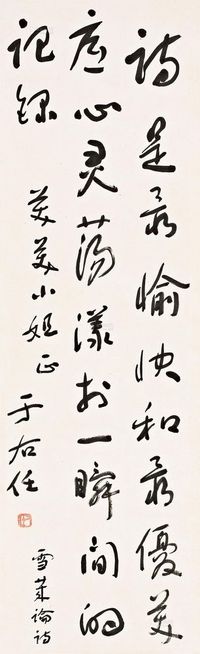 詩是最愉快和最優美
底心灵蕩漾於一瞬間的
記錄
美美小姐正
于右任
雪萊論詩